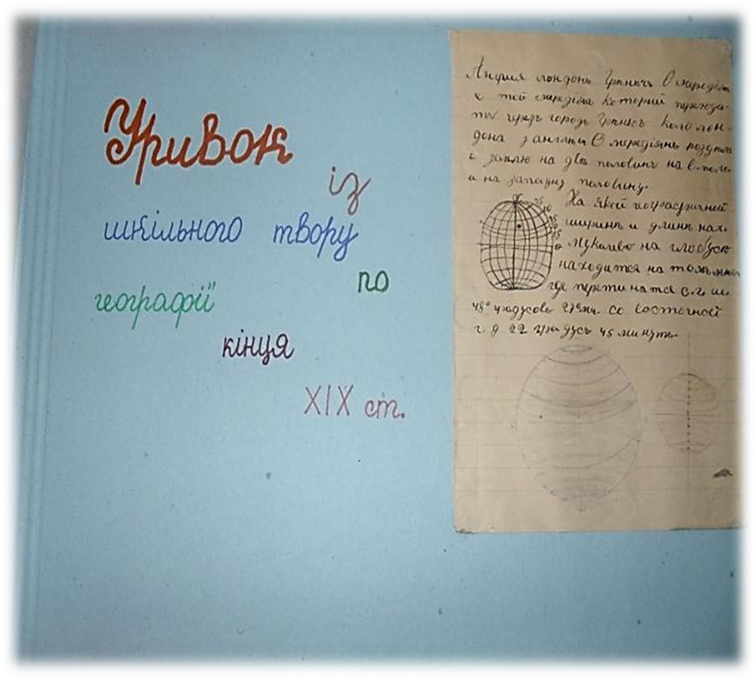 Уривок
із
шкільного твору
по
географії
кінця
XIX ст.
Англия лондонъ Гриничъ О меридіан
е той меридіан который переходи-
тъ черезъ городъ коло лон-
дона з англи О меридіанъ
е землю на две половинъ на
и на западну половину.
На якой географичной
ширинъ и длинъ нах.
Мукачево на глобусъ
находится на томъ
где перетинатся с. г. ш.
48° градусовъ 27 мн. со восточной
г. д 22 градусъ 45 минутъ.